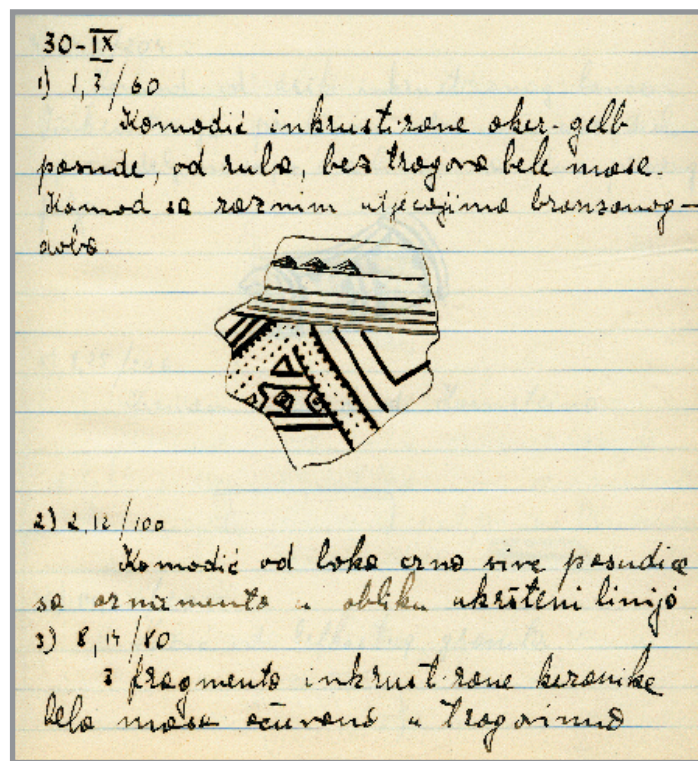 30-IX
1) 1,3/60
Komodić inkrustirane oker-gelb
posude, od ruba, bez tragova bele mase.
Komod sa raznim utjecajima bronsanog-
doba.
2) 2,12/100
Komodić od loka crno sive posudice
sa ornamenta u obliku ukršteni linija
3) 8,14/80
3 fragmenta inkrustirane keramike
bela masa očuvana u tragovima